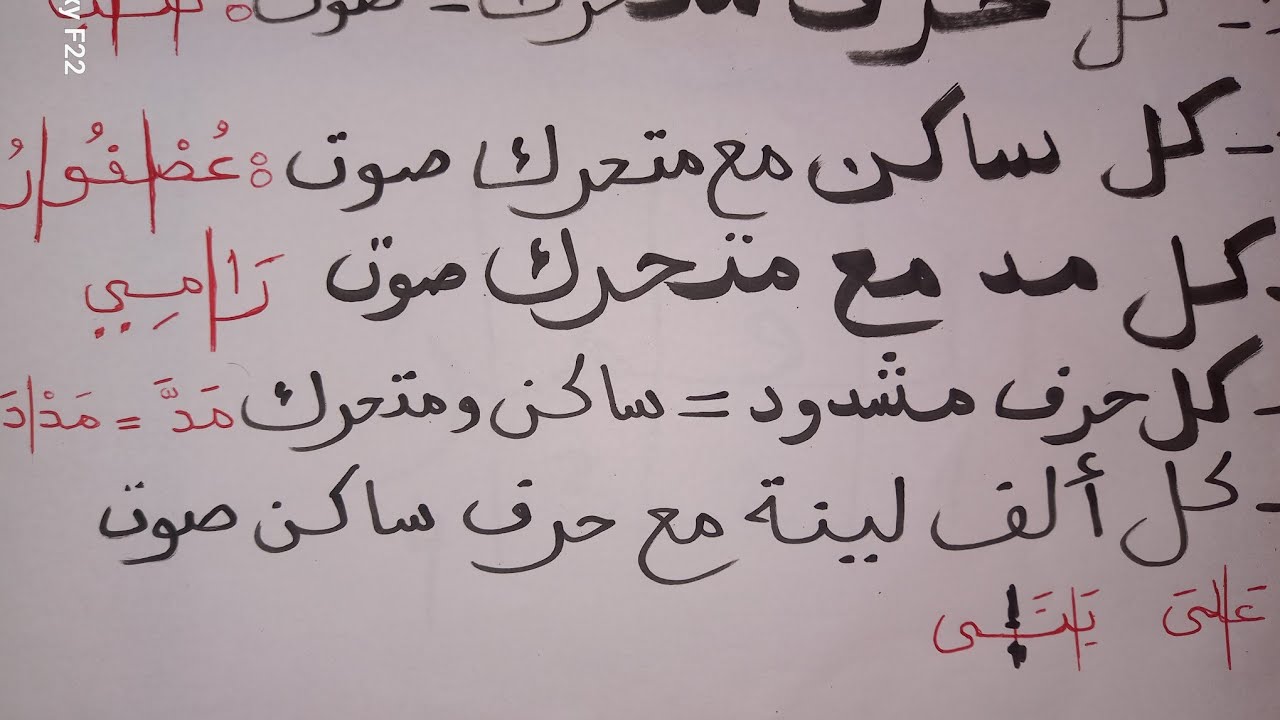 - كل حرف متحرك = صوت :
- كل ساكن مع متحرك صوت : عُصْ فُو رُ
- كل مد مع متحرك صوت رَا مِي
- كل حرف مشدود = ساكن ومتحرك مَدَّ = مَدْ دَ
- كل ألف لينة مع حرف ساكن صوت
عَ لَى يَ تَـ ـى
y F22